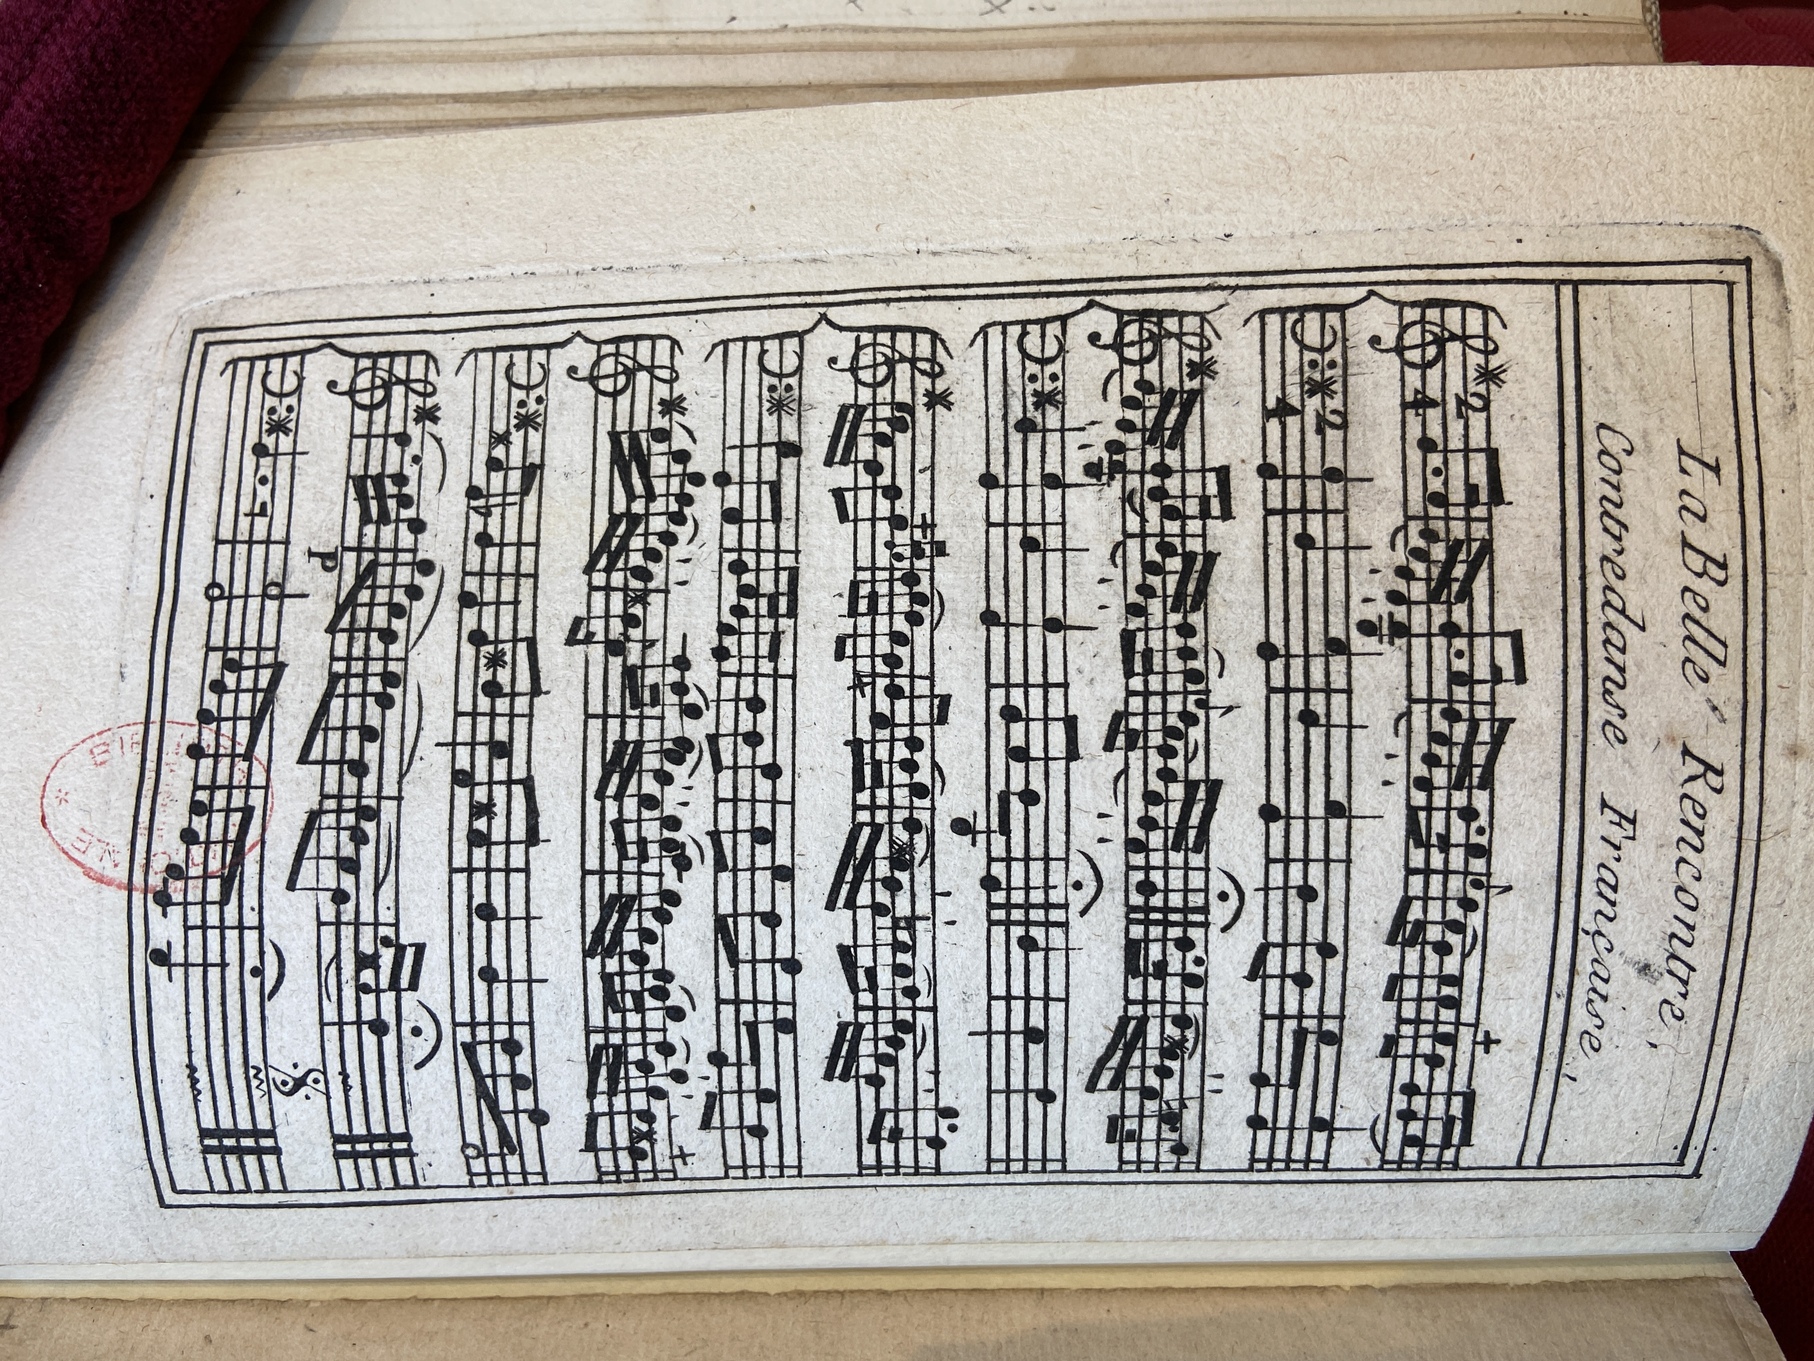 La Belle Rencontre,
Contredanse Française,
2
4
2
4
P